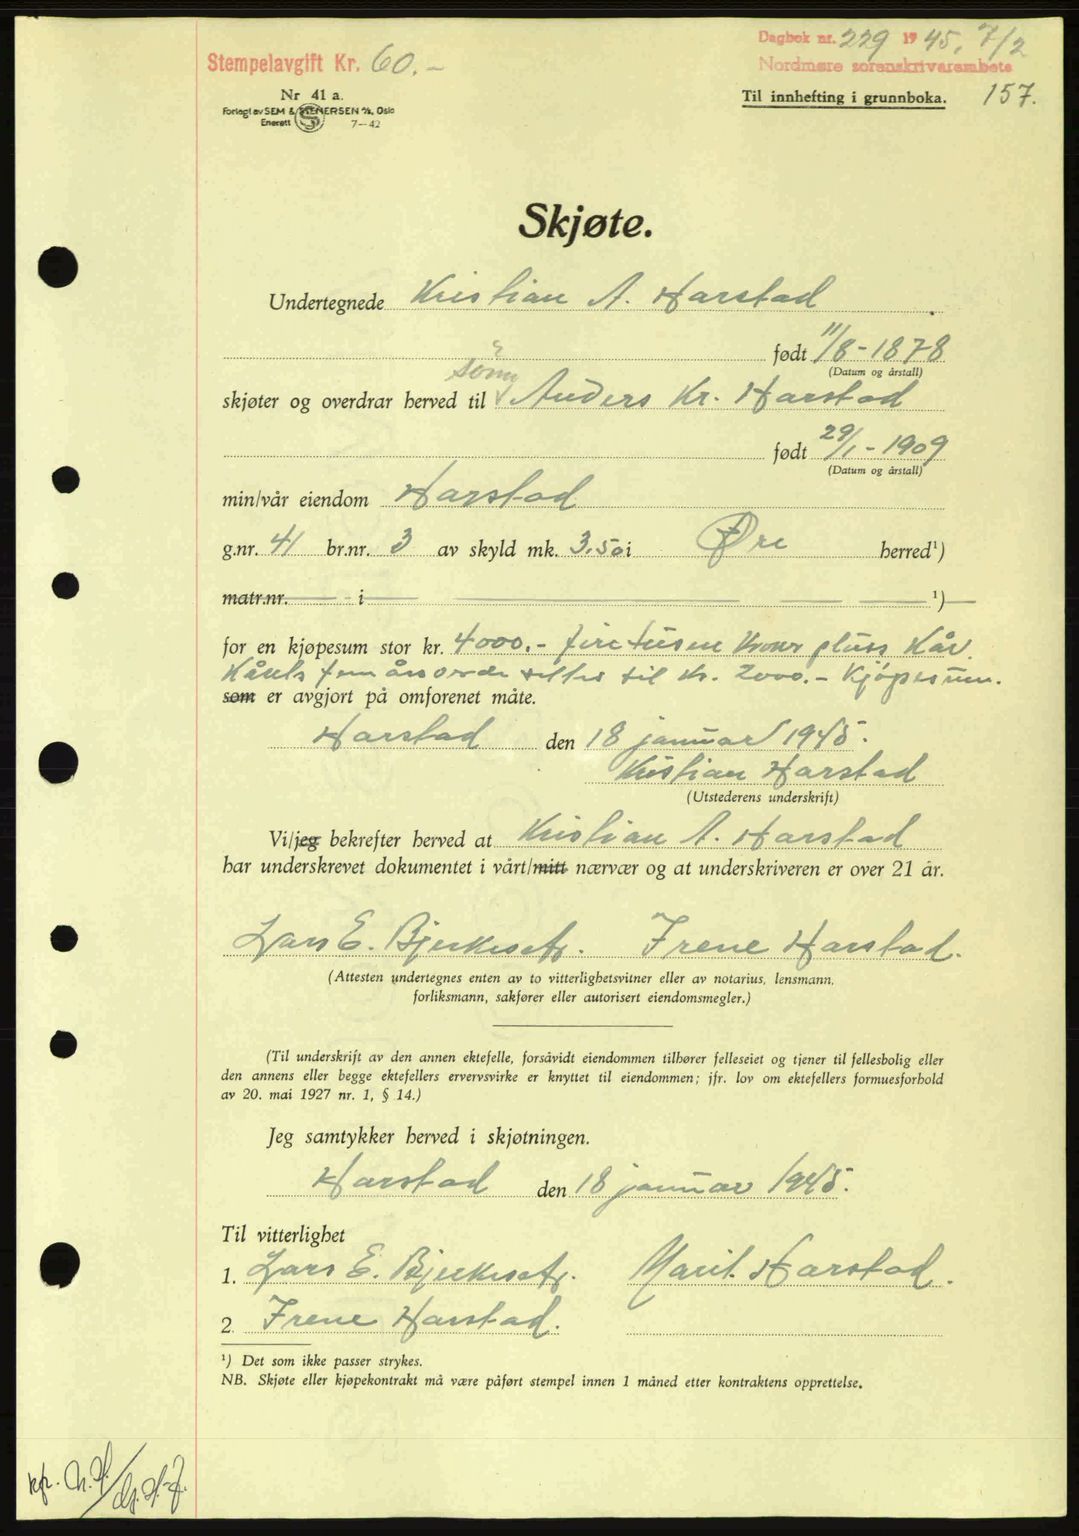 Stempelavgift Kr. 60.-
Dagbok nr. 229 1945, 7/2
Nordmøre sorenskrivarembete
Nr 41 a.
Forlagt av SEM & STENERSEN A/S, Oslo
Enerett 7-42
Til innhefting i grunnboka. 157.
Skjøte.
Undertegnede Kristian A. Harstad
født 11/8-1878
(Datum og årstall)
sønn
skjøter og overdrar herved til Anders Kr. Harstad
født 29/1-1909
(Datum og årstall)
min/vår eiendom Harstad
g.nr. 41 br.nr. 3 av skyld mk. 3.50 i Øre herred¹)
matr.nr. i ¹)
for en kjøpesum stor kr. 4000.- firetusen kroner pluss kår.
Kårets fem års verdi settes til kr. 2000.- Kjøpesum.
som er avgjort på omforenet måte.
Harstad den 18 januar 1945.
Kristian Harstad
(Utstederens underskrift)
Vi/jeg bekrefter herved at Kristian A. Harstad
har underskrevet dokumentet i vårt/mitt nærvær og at underskriveren er over 21 år.
Lars E. Bjerkeset. Irene Harstad.
(Attesten undertegnes enten av to vitterlighetsvitner eller av notarius, lensmann,
forliksmann, sakfører eller autorisert eiendomsmegler.)
(Til underskrift av den annen ektefelle, forsåvidt eiendommen tilhører felleseiet og tjener til fellesbolig eller
den annens eller begge ektefellers ervervsvirke er knyttet til eiendommen; jfr. lov om ektefellers formuesforhold
av 20. mai 1927 nr. 1, § 14.)
Jeg samtykker herved i skjøtningen.
Harstad den 18 januar 1945.
Til vitterlighet
1. Lars E. Bjerkeset. Marit Harstad.
2. Irene Harstad.
¹) Det som ikke passer strykes.
NB. Skjøte eller kjøpekontrakt må være påført stempel innen 1 måned etter kontraktens opprettelse.
kfr.